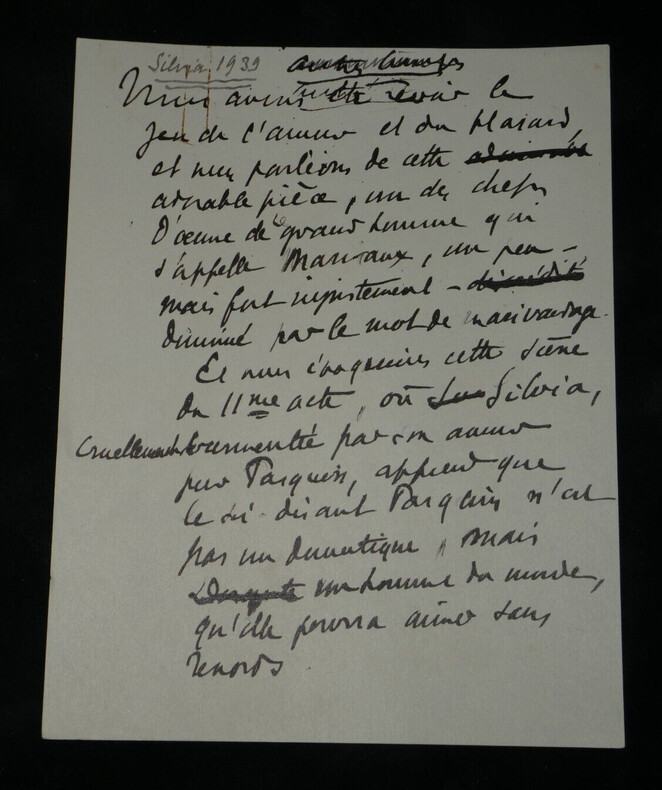 Silvia 1939
Nous avons été revoir le
jeu de l'amour et du hasard,
et nous parlions de cette
adorable pièce, un des chefs
d'œuvre de ce grand homme qui
s'appelle Marivaux, un peu –
mais fort injustement – discrédité
diminué par le mot de marivaudage.
Et nous évoquions cette scène
du IIme acte, où Silvia,
cruellement tourmentée par son amour
pour Pasquin, apprend que
le soi-disant Pasquin n'est
pas un domestique, mais
un homme du monde,
qu'elle pourra aimer sans
remords